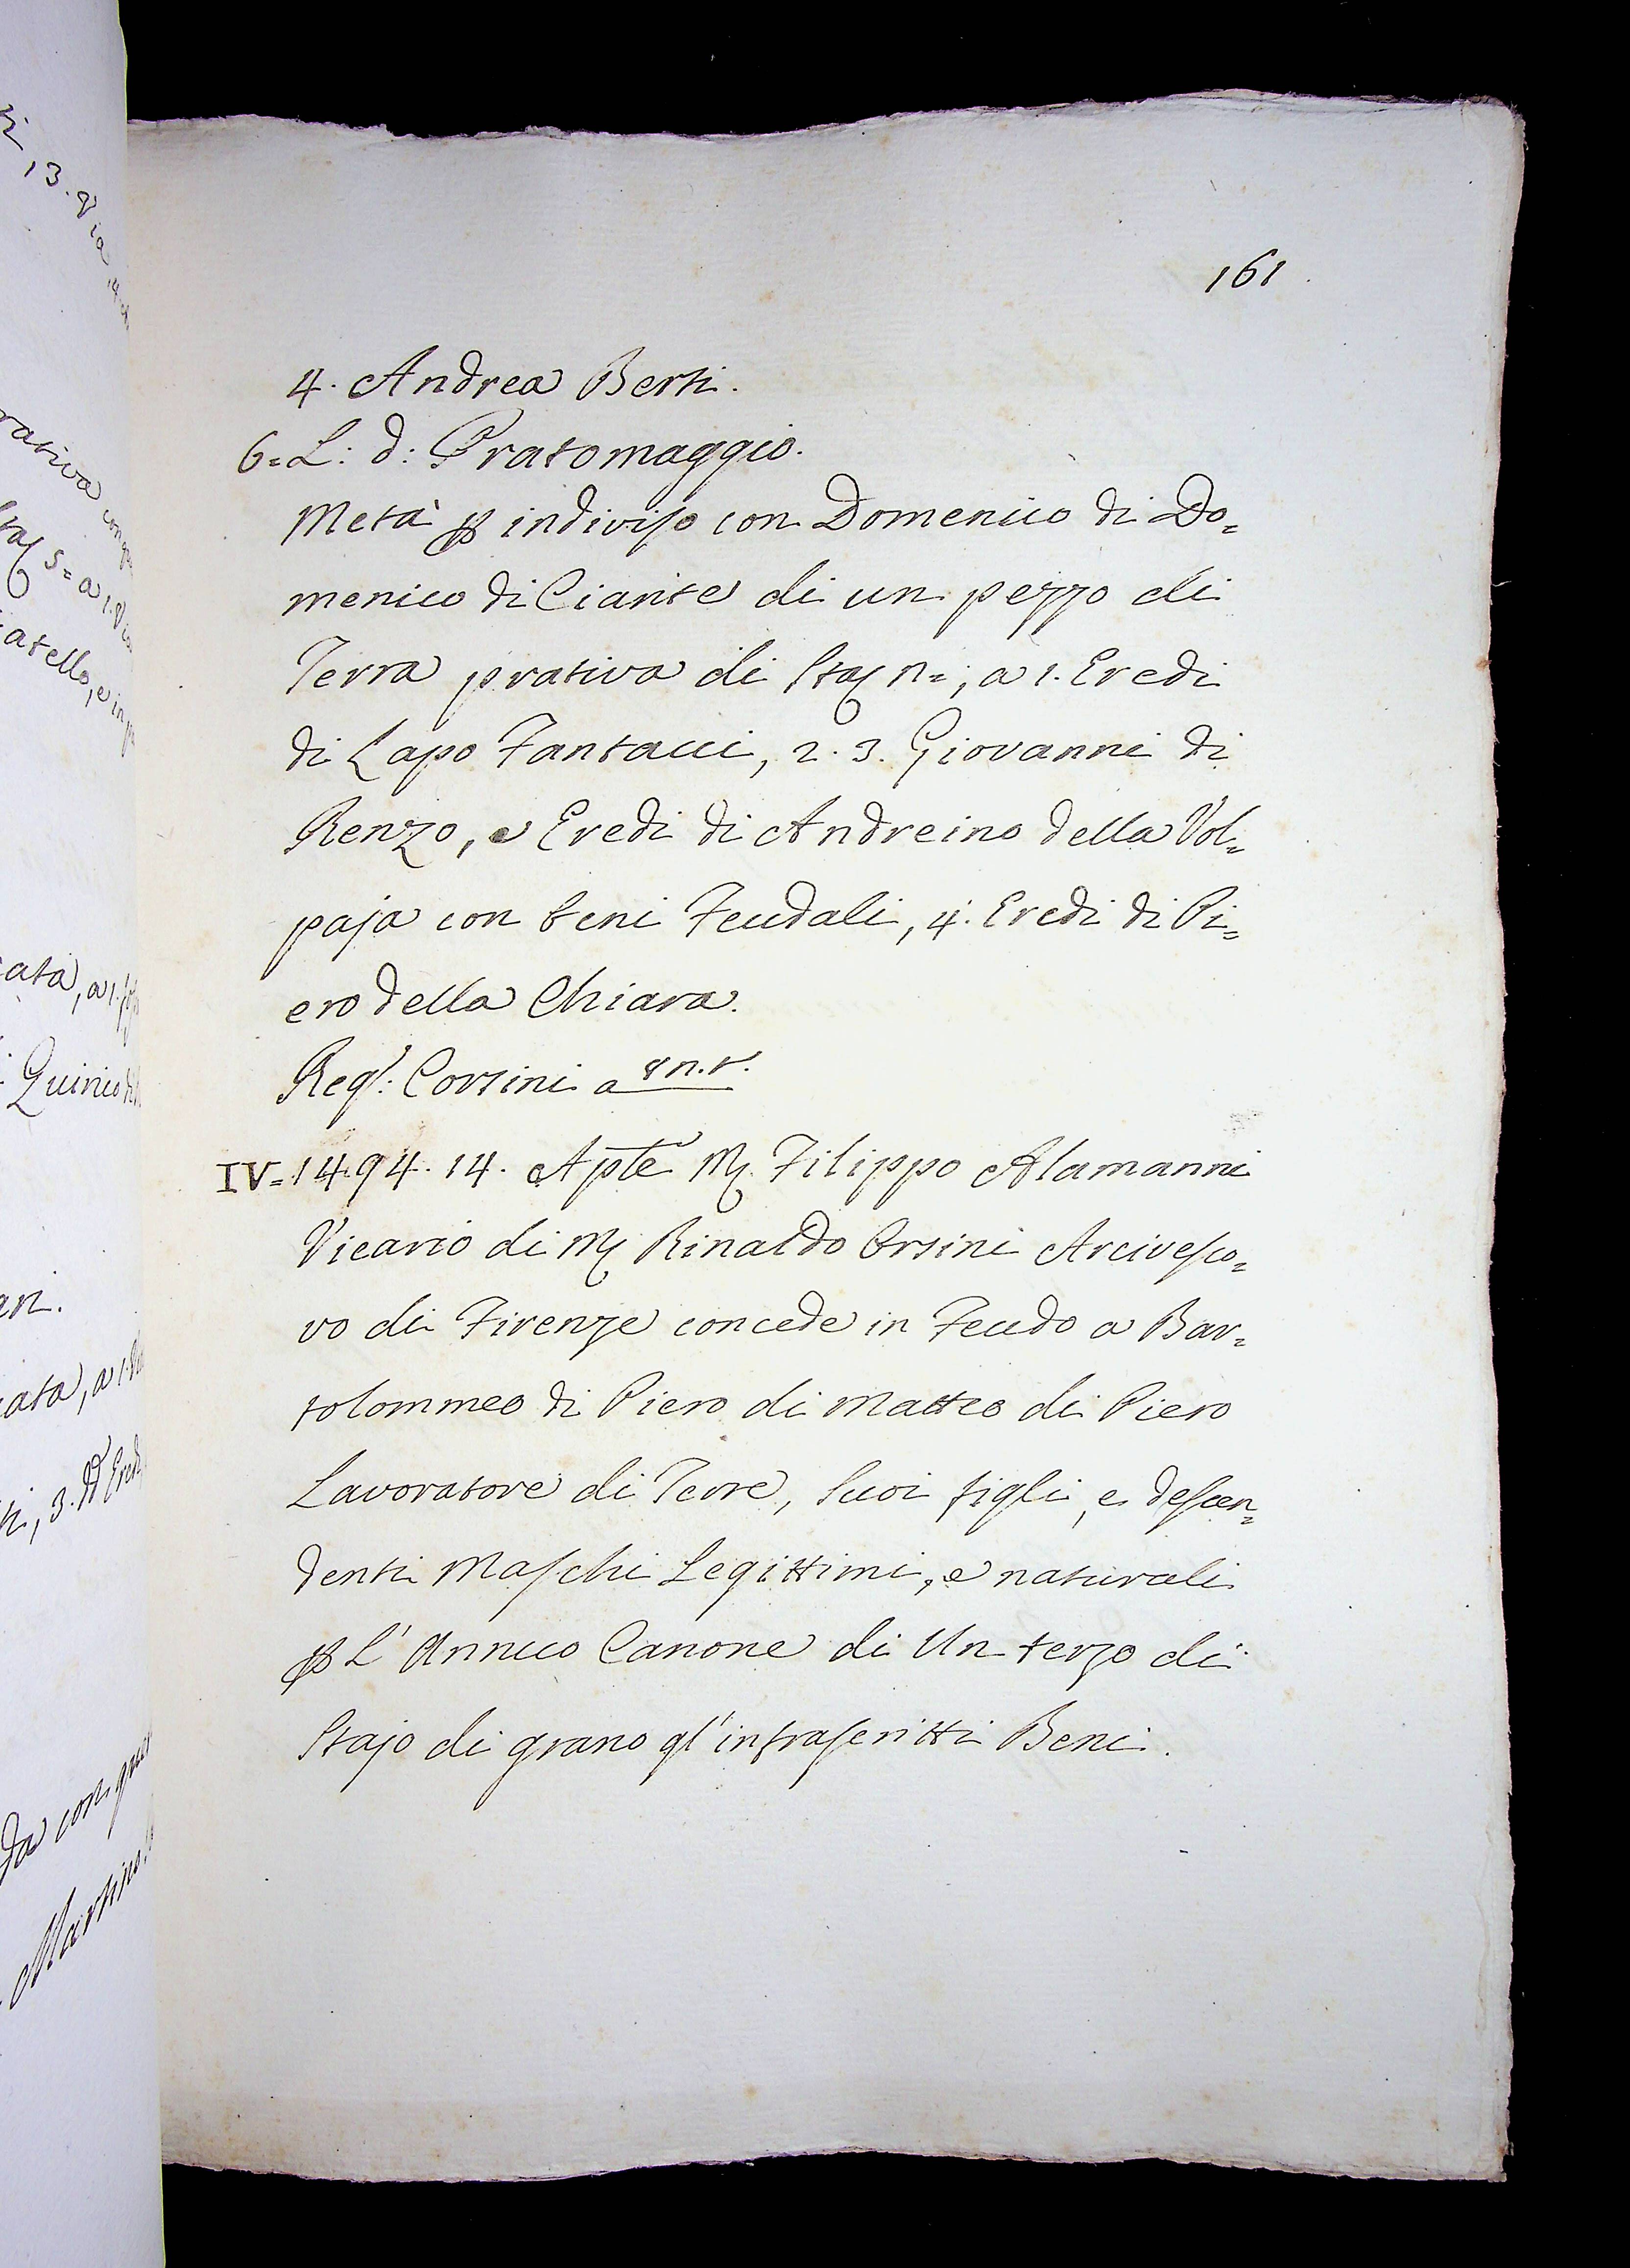 161
4. Andrea Berti.
6= L: d: Pratomaggio.
Metà p indiviso con Domenico di Do=
menico di Ciante di un pezzo di
Terra prativa di Staj n=, a 1. Eredi
di Lapo Fantacci, 2. 3. Giovanni di
Renzo, e Eredi di Andreino della Vol=
paja con beni Feudali, 4. Eredi di Pi=
ero della Chiara.
Reg: Corsini a
IV= 1494. 14. Aple M Filippo Alamanni
Vicario di M Rinaldo Orsini Arcivesco=
vo di Firenze concede in Feudo a Bar=
tolommeo di Piero di Matteo di Piero
Lavoratore di Terre, suoi figli, e descen=
denti Maschi Legittimi, e naturali
p L'Annuo Canone di Un terzo di
Stajo di grano gl'infrascritti Beni.